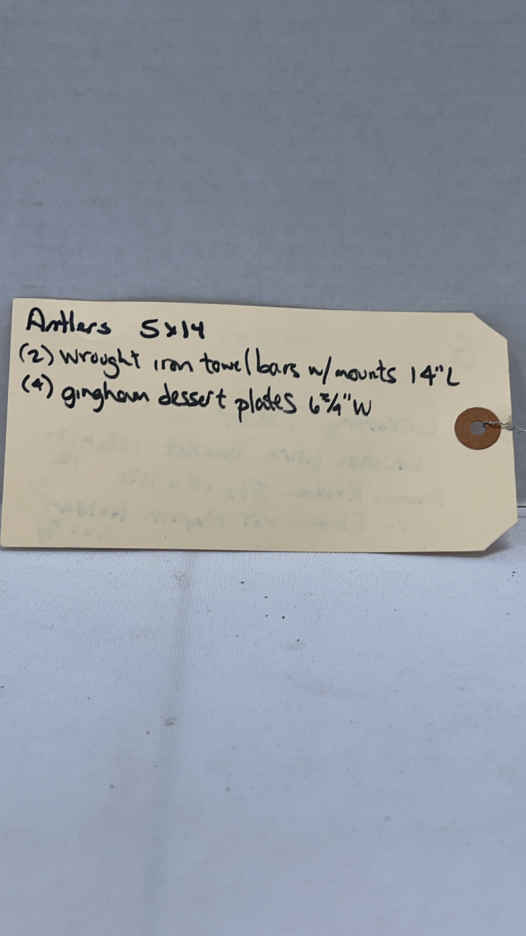 Antlers 5x14
(2) wrought iron towel bars w/ mounts 14"L
(4) gingham dessert plates 6¾"W